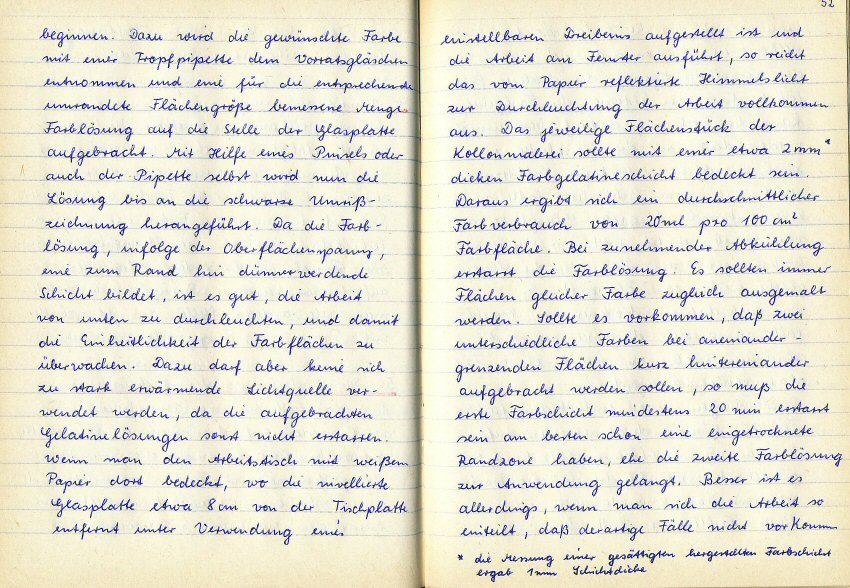 beginnen. Dazu wird die gewünschte Farbe
mit einer Tropfpipette dem Vorratsgläschen
entnommen und eine für die entsprechende
umrandete Flächengröße bemessene Menge
Farblösung auf die Stelle der Glasplatte
aufgebracht. Mit Hilfe eines Pinsels oder
auch der Pipette selbst wird nun die
Lösung bis an die schwarze Umriß-
zeichnung herangeführt. Da die Farb-
lösung, infolge der Oberflächenspanng,
eine zum Rand hin dünner werdende
Schicht bildet, ist es gut, die Arbeit
von unten zu durchleuchten, und damit
die Einheitlichkeit der Farbflächen zu
überwachen. Dazu darf aber keine sich
zu stark erwärmende Lichtquelle ver-
wendet werden, da die aufgebrachten
Gelatinelösungen sonst nicht erstarren.
Wenn man den Arbeitstisch mit weißem
Papier dort bedeckt, wo die nivellierte
Glasplatte etwa 8 cm von der Tischplatte
entfernt unter Verwendung eines
52
einstellbaren Dreibeins aufgestellt ist und
die Arbeit am Fenster ausführt, so reicht
das vom Papier reflektierte Himmelslicht
zur Durchleuchtung der Arbeit vollkommen
aus. Das jeweilige Flächenstück der
Kollonmalerei sollte mit einer etwa 2mm*
dicken Farbgelatineschicht bedeckt sein.
Daraus ergibt sich ein durchschnittlicher
Farbverbrauch von 20ml pro 100 cm²
Farbfläche. Bei zunehmender Abkühlung
erstarrt die Farblösung. Es sollten immer
Flächen gleicher Farbe zugleich ausgemalt
werden. Sollte es vorkommen, daß zwei
unterschiedliche Farben bei aneinander-
grenzenden Flächen kurz hintereinander
aufgebracht werden sollen, so muß die
erste Farbschicht mindestens 20 min erstarrt
sein am besten schon eine eingetrocknete
Randzone haben, ehe die zweite Farblösung
zur Anwendung gelangt. Besser ist es
allerdings, wenn man sich die Arbeit so
einteilt, daß derartige Fälle nicht vorkommen
* die Messung einer gesättigten hergestellten Farbschicht
ergab 1mm Schichtdicke